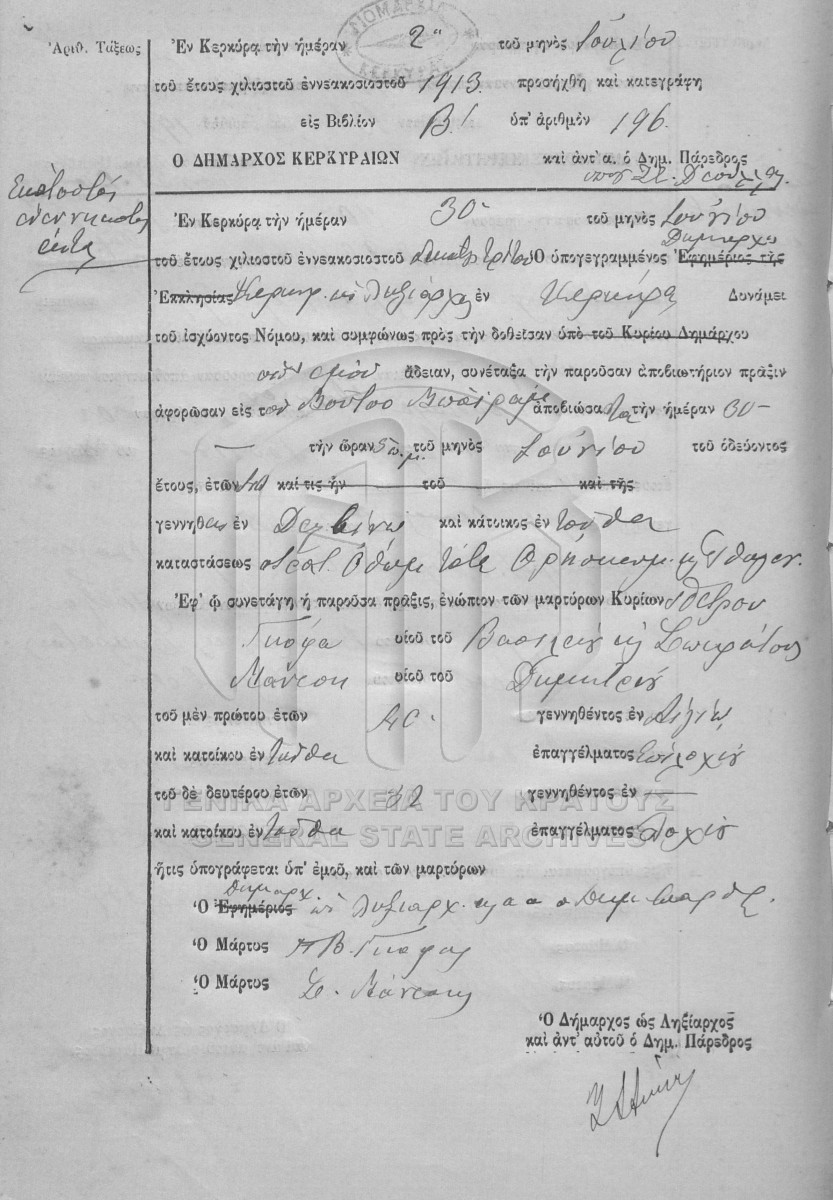 ΔΗΜΑΡΧΕΙΑ
ΚΕΡΚΥΡΑΣ
Ἀριθ. Τάξεως
Ἐν Κερκύρᾳ τὴν ἡμέραν 2α τοῦ μηνὸς Ἰουλίου
τοῦ ἔτους χιλιοστοῦ ἐννεακοσιοστοῦ 1913 προσήχθη καὶ κατεγράφη
εἰς Βιβλίον Β' ὑπ' ἀριθμὸν 196.
Ο ΔΗΜΑΡΧΟΣ ΚΕΡΚΥΡΑΙΩΝ καὶ ἀντ' α. ὁ Δημ. Πάρεδρος
Ἑκατοστὸς
ἐνενηκοστὸς
ἕκτος
Ἐν Κερκύρᾳ τὴν ἡμέραν 30 τοῦ μηνὸς Ἰουνίου
Δημαρχος
τοῦ ἔτους χιλιοστοῦ ἐννεακοσιοστοῦ δεκάτου τρίτου Ὁ ὑπογεγραμμένος Ἐφημέριος τῆς
Ἐκκλησίας Κερκυρ. ὡς Ληξίαρχος ἐν Κερκύρᾳ Δυνάμει
τοῦ ἰσχύοντος Νόμου, καὶ συμφώνως πρὸς τὴν δοθεῖσαν ὑπὸ τοῦ Κυρίου Δημάρχου
ὑπ' ἐμοῦ ἄδειαν, συνέταξα τὴν παροῦσαν ἀποβιωτήριον πρᾶξιν
ἀφορῶσαν εἰς τὸν ἀποβιώσαντα τὴν ἡμέραν 30
τὴν ὥραν 5 π.μ. τοῦ μηνὸς Ἰουνίου τοῦ ὁδεύοντος
ἔτους, ἐτῶν καί τις ἦν τοῦ καὶ τῆς
γεννηθεὶς ἐν Δελβίνῳ καὶ κάτοικος ἐν ταῦθα
καταστάσεως
Ἐφ' ᾧ συνετάγη ἡ παροῦσα πρᾶξις, ἐνώπιον τῶν μαρτύρων Κυρίων Πέτρου
Γκόφα υἱοῦ τοῦ Βασιλείου καὶ Σωκράτους
Μάνεση υἱοῦ τοῦ Δημητρίου
τοῦ μὲν πρώτου ἐτῶν γεννηθέντος ἐν Αἰγίῳ
καὶ κατοίκου ἐν ταῦθα ἐπαγγέλματος Ἐπιλοχίου
τοῦ δὲ δευτέρου ἐτῶν 32 γεννηθέντος ἐν —
καὶ κατοίκου ἐν ταῦθα ἐπαγγέλματος Λοχίου
ἥτις ὑπογράφεται ὑπ' ἐμοῦ, καὶ τῶν μαρτύρων
Δημαρχ.
Ὁ Ἐφημέριος ὡς Ληξίαρχ. κ α α ο Δημ. Παρεδρ.
Ὁ Μάρτυς Π Β. Γκόφας
Ὁ Μάρτυς Σ. Μάνεσης
Ὁ Δήμαρχος ὡς Ληξίαρχος
καὶ ἀντ' αὐτοῦ ὁ Δημ. Πάρεδρος
ΓΕΝΙΚΑ ΑΡΧΕΙΑ ΤΟΥ ΚΡΑΤΟΥΣ
GENERAL STATE ARCHIVES